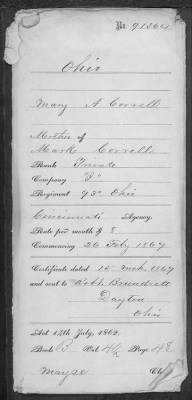 No. 91364
Ohio
Mary A Correll
Mother of
Mark Correll
Rank Private
Company "I"
Regiment 93d Ohio
Cincinnati Agency.
Rate per month $ 8
Commencing 26 Feby 1867
Certificate dated 15 Mch. 1867
and sent to Robt Brundrett
Dayton
Ohio
Act 14th July, 1862.
Book B Vol 4½ Page 48
Mayse Clk